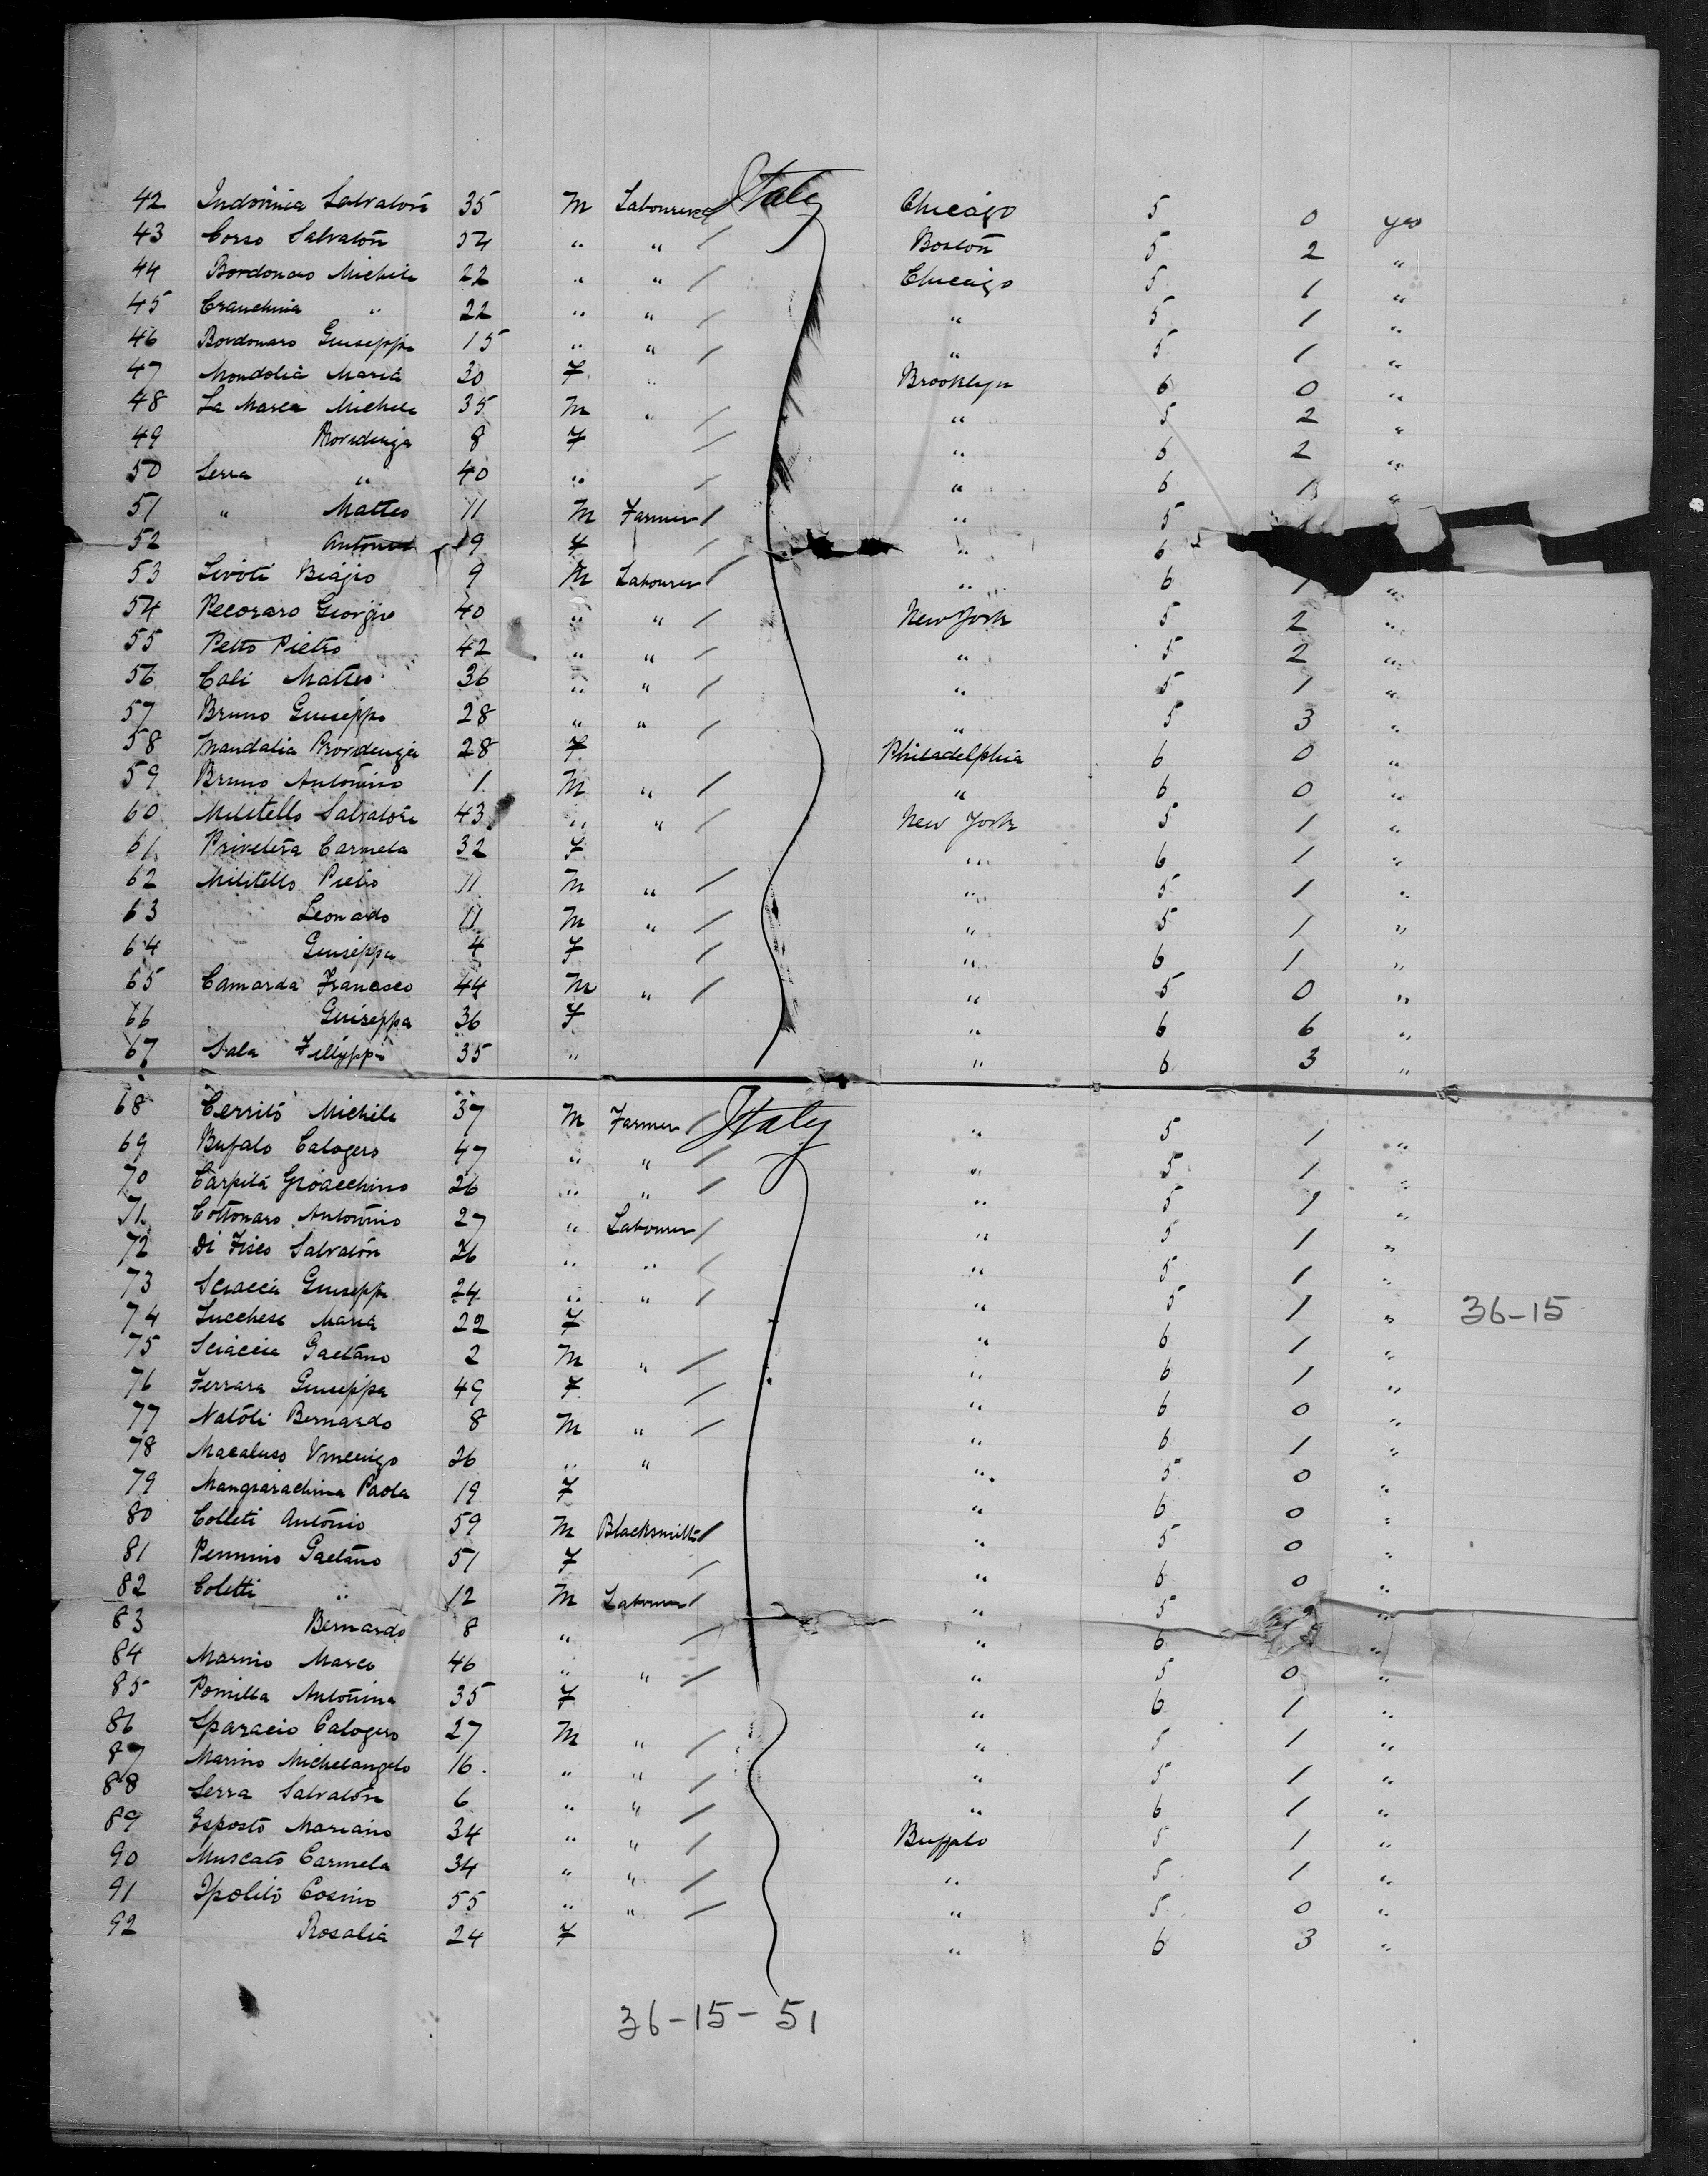 42 Indovina Salvatore 35 M Labourer Italy Chicago 5 0 yes
43 Corso Salvatore 54 " " / Boston 5 2 "
44 Bordonaro Michele 22 " " / Chicago 5 1 "
45 Cranchina " 22 " " / " 5 1 "
46 Bordonaro Giuseppe 15 " " / " 5 1 "
47 Mondolia Maria 30 F " Brooklyn 6 0 "
48 La Marca Michele 35 M " / " 5 2 "
49 Providenza 8 F / " 6 2 "
50 Serra " 40 " / " 6 1 "
51 " Matteo 11 M Farmer / " 5
52 19 F / " 6
53 Livoti Biagio 9 M Labourer / " 6 1 "
54 Pecoraro Giorgio 40 " " / New York 5 2 "
55 Petto Pietro 42 " " / " 5 2 "
56 Cali Matteo 36 " " / " 5 1 "
57 Bruno Giuseppe 28 " " / " 5 3 "
58 Mandalia Providenza 28 F Philadelphia 6 0 "
59 Bruno Antonino 1 M " / " 6 0 "
60 Militello Salvatore 43 " " / New York 5 1 "
61 Carmela 32 F " 6 1 "
62 Militello Pietro 11 M " / " 5 1 "
63 Leonardo 11 M " / " 5 1 "
64 Giuseppa 4 F / " 6 1 "
65 Camarda Francesco 44 M " / " 5 0 "
66 Giuseppa 36 F " 6 6 "
67 Sala Filippa 35 " " 6 3 "
68 Cerrito Michele 37 M Farmer / Italy " 5 1 "
69 Bufalo Calogero 47 " " / " 5 1 "
70 Carpita Gioacchino 26 " " / " 5 1 "
71 Cottonaro Antonino 27 " Labourer / " 5 1 "
72 Di Fisco Salvatore 26 " " / " 5 1 "
73 Sciaccia Giuseppe 24 " " / " 5 1 " 36-15
74 Lucchese Maria 22 F " 6 1 "
75 Sciaccia Gaetano 2 M " / " 6 1 "
76 Ferrara Giuseppa 49 F / " 6 0 "
77 Natoli Bernardo 8 M " / " 6 1 "
78 Macaluso Vincenzo 26 " " " 5 0 "
79 Mangiarachina Paola 19 F " 6 0 "
80 Colleti Antonio 59 M Blacksmith / " 5 0 "
81 Pennino Gaetano 51 F / " 6 0 "
82 Coletti " 12 M Labourer / " 5 "
83 Bernardo 8 " / " 6 "
84 Marino Marco 46 " " / " 5 0 "
85 Pomilla Antonina 35 F " 6 1 "
86 Sparacio Calogero 27 M " / " 5 1 "
87 Marino Michelangelo 16 " " / " 5 1 "
88 Serra Salvatore 6 " " / " 6 1 "
89 Esposto Mariano 34 " " / Buffalo 5 1 "
90 Muscato Carmela 34 " " / " 5 1 "
91 Ipolito Cosimo 55 " " / " 5 0 "
92 Rosalia 24 F " 6 3 "
36-15-51